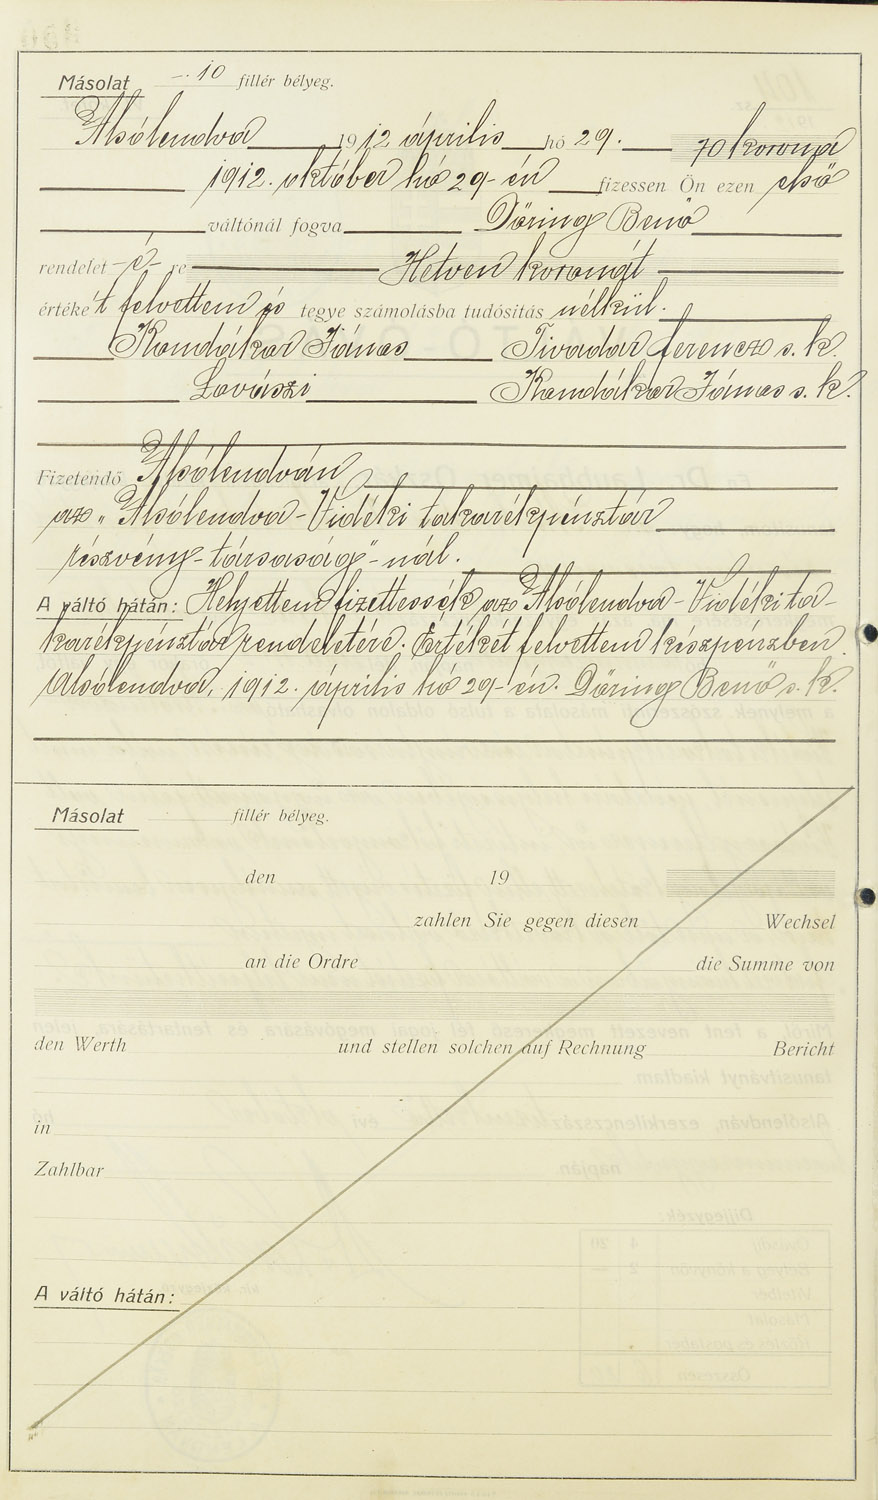 Másolat -.10 fillér bélyeg.
Alsólendva 1912 április hó 29. 70 korona
1912. október hó 29-én fizessen Ön ezen első
váltónál fogva Döring Benő
rendelet-é-re Hetven koronát
értéké't felvettem és tegye számolásba tudósítás nélkül.
Kandákar János Tivadar Ferencz s. k.
Lovászi Kandákar János s. k.
Fizetendő Alsólendván
az „Alsólendva-Vidéki takarékpénztár
részvény-társaság"-nál.
A váltó hátán: Helyettem fizettessék az Alsólendva-Vidéki ta-
karékpénztár rendeletére. Értékét felvettem készpénzben.
Alsólendva, 1912. április hó 29-én. Döring Benő s. k.
Másolat fillér bélyeg.
den 19
zahlen Sie gegen diesen Wechsel
an die Ordre die Summe von
den Werth und stellen solchen auf Rechnung Bericht
in
Zahlbar
A váltó hátán: